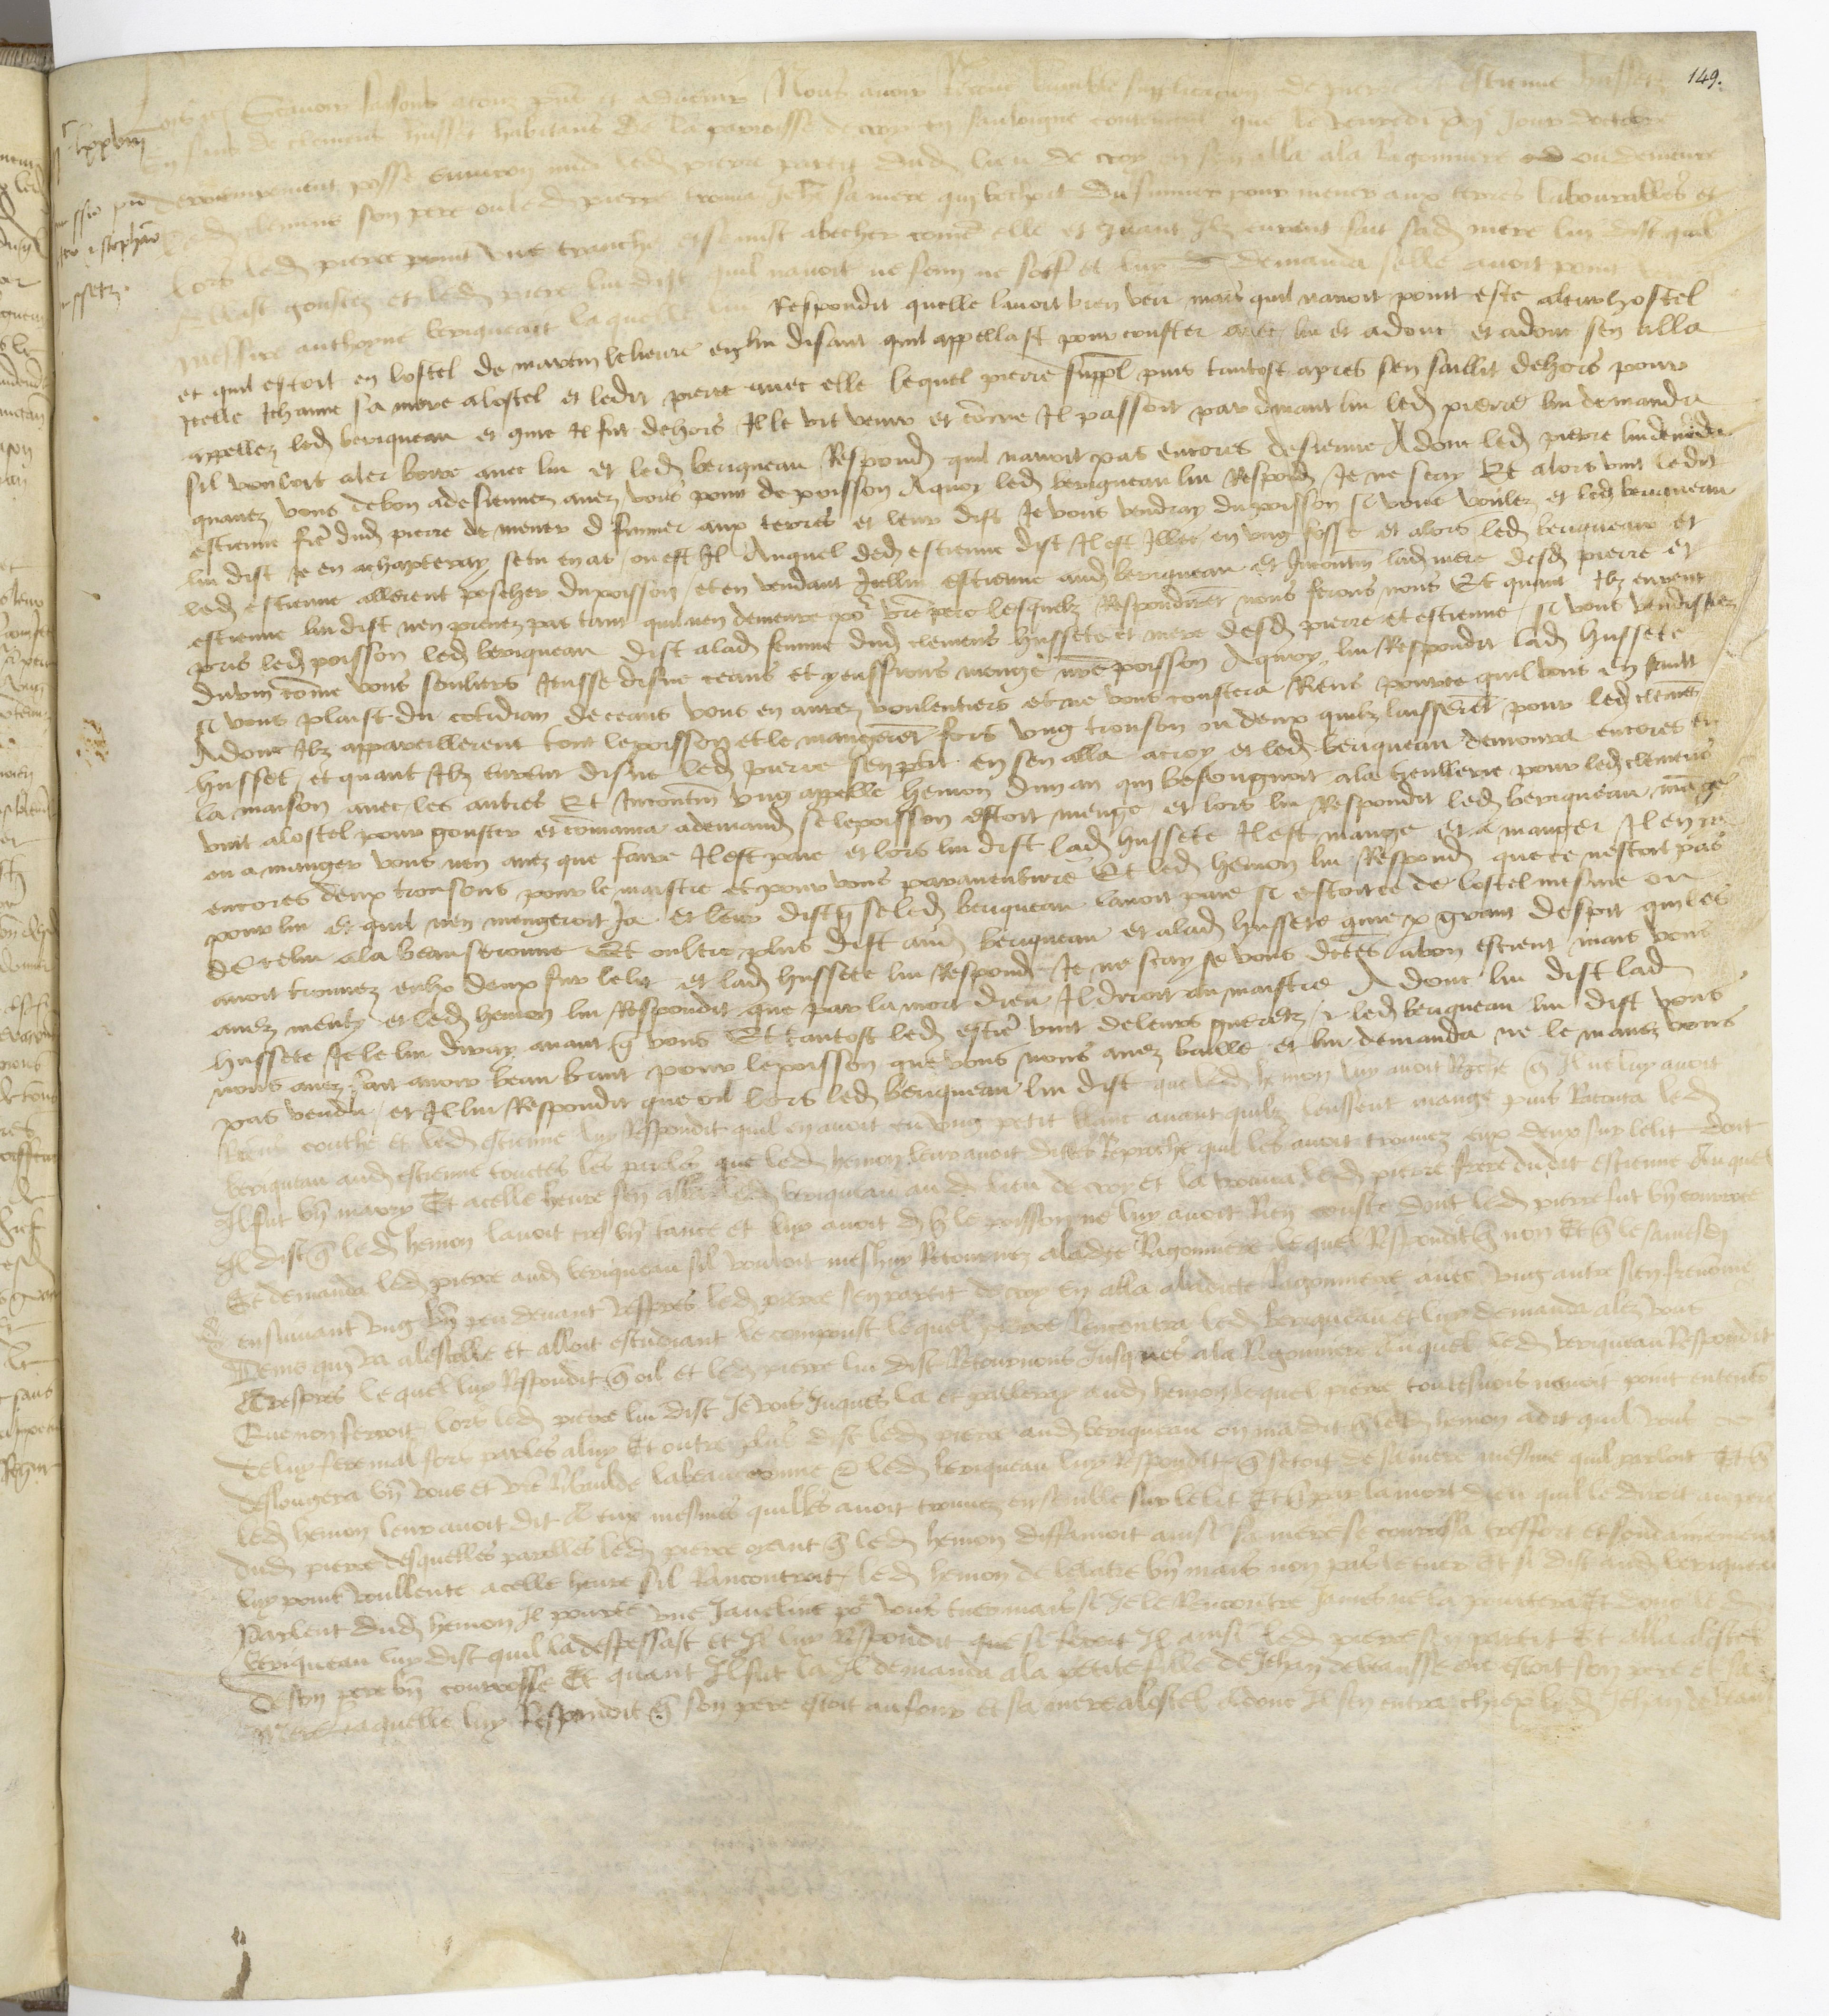 149.
Loys etc. Savoir faisons a tous pns et advenir Nous avoir Receue humble supplicacion de pierre estienne hussetz
filz de clement husset habitans de la parroisse de croy en sauloigne contenant que le vendredi jour doctobre
derrenierement passe environ midi led pierre partit dud lieu de croy en sen alla a la Ragonniere ou demeure
led clemens son pere ou led pierre trouva Jehe sa mere qui bechoit du fumier pour mener aux terres labourables et
lors led pierre print une tranche et se mist a becher come elle et quant Ilz eurent fait sad mere lui dist quil
alast gouster et led pierre lui dist quil navoit ne faim ne soef et luy demanda selle avoit point
messire anthoyne beriqueau laquelle luy Respondit quelle lavoit bien veu mais quil navoit point este a leur hostel
et quil estoit en lostel de martin lelievre en lui disant quil appellast pour gouster avec lui et adonc et adonc sen alla
Icelle Jehanne sa mere a lostel et ledit pierre avec elle lequel pierre suppl puis tantost apres sen saillit dehors pour
appellez led beriqueau et quie Il fut dehors Il le vit venir et come Il passoit par devant lui led pierre lui demanda
sil vouloit aler boire avec lui et led beriqueau Respond quil navoit pas encores desieune Adonc led pierre lui demanda
quavez vous de bon a desieuner avez vous point de poisson A quoy led beriqueau lui Respond Je ne scay Et alors vint ledit
estienne fre dud pierre de mener d fumier aux terres et leur dist Je vous vendray du poisson se vous voulez et led beriqueau
lui dist Je en achapteray se tu en as ou est Il Auquel led estienne dist Il est Illec en ung fosse et alors led beriqueau et
led estienne allerent peschier du poisson et en vendant Icellui estienne aud beriqueau et Incontin lad mere desd pierre et
estienne lui dist nen prenez pas tant quil nen demeure po vre pere lesquelz Respondirent nous ferons nous Et quant Ilz eurent
pris led poisson led beriqueau dist a lad femme dud clemens hussete et mere desd pierre et estienne se vous vendissiez
du vin come vous souliez Jeusse disne ceans et y eussions menge nre poisson A quoy lui Respondit lad hussete
se vous plaist du cotidian de ceans vous en aurez voulentiers et ne vous coustera Riens pourtce quil vous en
Adonc Ilz appareillerent tout le poisson et le mangerent fors ung tronson ou deux quilz laisserent pour led clemens
husset et quant Ilz eurent disne led pierre sen en sen alla a croy et led beriqueau demoura encores en
la maison avec les autres Et Incontin ung appelle hemon duman qui besongnoit a la theullerie pour led clemens
vint a lostel pour gouster et comanca a demand se le poisson estoit menge et lors lui Respondit led beriqueau
on a manger vous nen avez que faire Il est paie et lors lui dist lad hussete Il est mange et a manger Il en ya
encores deux tronsons pour le maistre et pour vous paraventure Et led hemon lui Respond que ce nestoit pas
pour lui et quil nen mengeroit Ja et leur dist q se led beriqueau lavoit paie se estoit ce de lostel mesme ou
de celui a la beausseronne Et oultre plus dist aud beriqueau et a lad hussete quie p grant despit quil les
avoit trouvez eulx deux sur le lit et lad hussete lui Respond Je ne scay se vous dictes a bon escient mais vous
avez menty et led hemon lui Respondit que par la mort dieu Il diroit au maistre Adonc lui dist lad
hussete Je le lui diray avant q vous Et tantost led estien vint de leurs gueretz et led beriqueau lui dist vous
nous avez fait avoir beau bruit pour le poisson que vous nous avez baille et lui demanda ne le mavez vous
pas vendu et Il lui Respondit que oil lors led beriqueau lui dist que led hemon luy avoit Reproche q Il ne luy avoit
Riens couste et led estienne luy Respondit quil en avoit eu ung petit blanc avant quilz leussent mange puis Raconta led
beriqueau aud estienne toutes les paroles que led hemon leur avoit dictes Reproche quil les avoit trouvez eux deux sur le lit dont
Il fut bn marry Et a celle heure sen alla led beriqueau aud lieu de croy et la trouva led pierre frere dudit estienne Auquel
Il dist q led hemon lavoit tres bn tance et luy avoit d q le poisson ne luy avoit Rien couste dont led pierre fut bn courroce
Et demanda led pierre aud beriqueau sil vouloit meshuy Retournez a ladte Ragonniere lequel Respondit q non Et q le samesdi
ensuivant ung bn peu devant vespres led pierre sen partit de croy en alla a ladicte Ragonniere avec ung autre sien frere nome
Denis qui va a lescolle et alloit estudiant le compoust lequel pierre Rencontra led beriqueau et luy demanda alez vous
A vespres lequel luy Respondit q oil et led pierre lui dist Retournons Jusques a la Ragonniere Auquel led beriqueau Respondit
Que non feroit lors led pierre lui dist Je vois Juques la et parleray aud hemon lequel pierre toutesvois navoit point entencion
de luy fere mal fors parler a luy Et outre plus dist led pierre aud beriqueau on ma dit q led hemon a dit quil vous
deslongera bn vous et vre Ribaulde la beauceronne et led beriqueau luy Respondit q sestoit de sa mere mesme quil parloit Et q
led hemon leur avoit dit a eux mesmes quil les avoit trouvez ensemble sur le lit Et q par la mort dieu quil le diroit au pere
dud pierre desquelles parolles led pierre oyant q led hemon diffamoit ainsi sa mere se courrossa tresfort et soudainement
luy print voullente a celle heure sil Rancontroit led hemon de le batre bn mais non pas le tuer Et si dist aud beriqueau
Parlent dud hemon Il pourte une Javeline po vous tuer mais si Je le Rencontre Jamais ne la pourtera Et donc led
beriqueau luy dist quil la despessast et Il luy Respondit que si feroit Il ainsi led pierre sen partit Et alla a lostel
de son pere bn courrosse Et quant Il fut la Il demanda a la petite fille de Jehan de beausse ou estoit son pere et sa
mere laquelle luy Respondit q son pere estoit au four et sa mere a lostel adonc Il sen entra chiez led Jehan de beausse